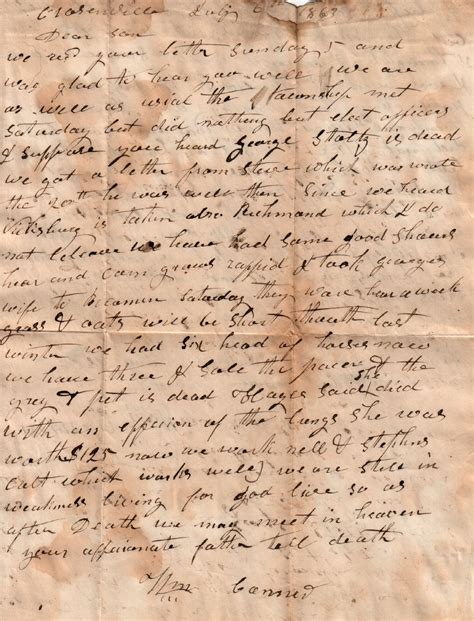 July 6th 1863
Dear Son
we red your letter Sunday 5 and
was glad to hear you well we are
as well as usial the township met
Saturday but did nothing but elect officers
I suppose you heard George Stolts is dead
we got a letter from Steve which was wrote
the 20th he was well then Since we heard
Vicksburg is taken also Richmond which I do
not beleave we have had some good showers
hear and corn grows rappid I took georges
wife to Saturday they ware hear a week
grass & oats will be short theuth last
winter we had six head of horses now
we have three I Sole the pacer & the
grey & pet is dead Hayes Said She died
with an effusion of the lungs She was
worth $125 now we work nell & Stephns
Colt which works well we are still in
weakness living for god live so as
after Death we may meet in heaven
your affecionate father till death
Wm